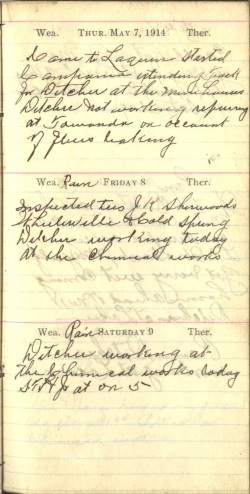 Wea. THUR. MAY 7, 1914 Ther.
Came to Laquin started
Campania extending track
for Ditcher at the
Ditcher not working repairing
at Towanda on account
of flues leaking
Wea. Rain FRIDAY 8 Ther.
Inspected ties J.K. Sherwoods
& Cold Spring
Ditcher working today
at the chemical works
Wea. Rain SATURDAY 9 Ther.
Ditcher working at
the Chemical works today
at on 5